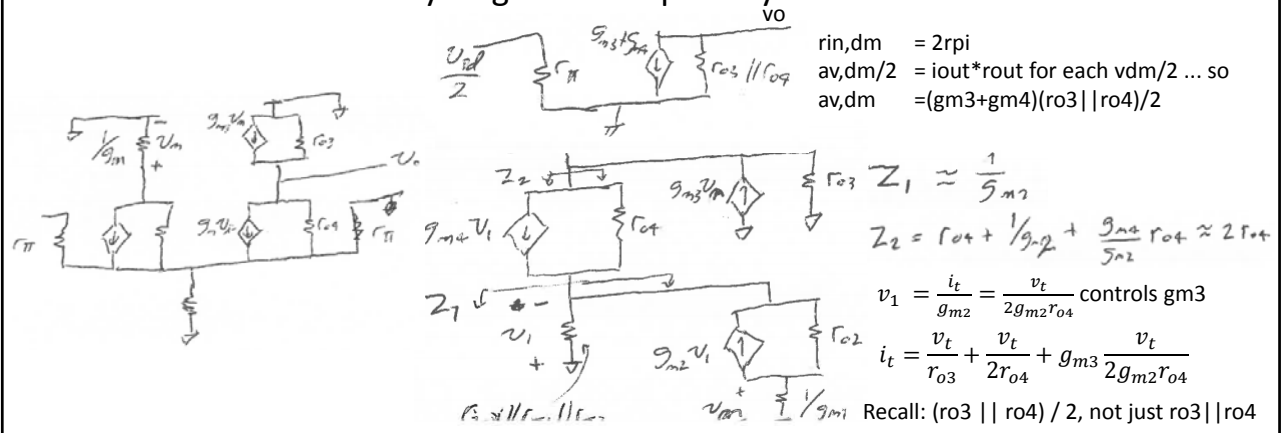 vo
rin,dm = 2rpi
av,dm/2 = iout*rout for each vdm/2 ... so
av,dm =(gm3+gm4)(ro3||ro4)/2
v_id/2
r_π
g_m3+g_m4
r_o3 // r_o4
1/g_m
v_m
- 
+
g_m3 v_m
r_o3
v_o
r_π
r_o4
r_π
Z_2
g_m4 v_1
r_o4
r_o3
Z_1 ≈ 1/g_m2
Z_2 = r_o4 + 1/g_m2 + g_m4/g_m2 r_o4 ≈ 2 r_o4
Z_1
-
v_1
+
g_m2 v_1
r_o2
+
v_1 = i_t/g_m2 = v_t/2g_m2r_o4 controls gm3
i_t = v_t/r_o3 + v_t/2r_o4 + g_m3 v_t/2g_m2r_o4
Recall: (ro3 || ro4) / 2, not just ro3||ro4